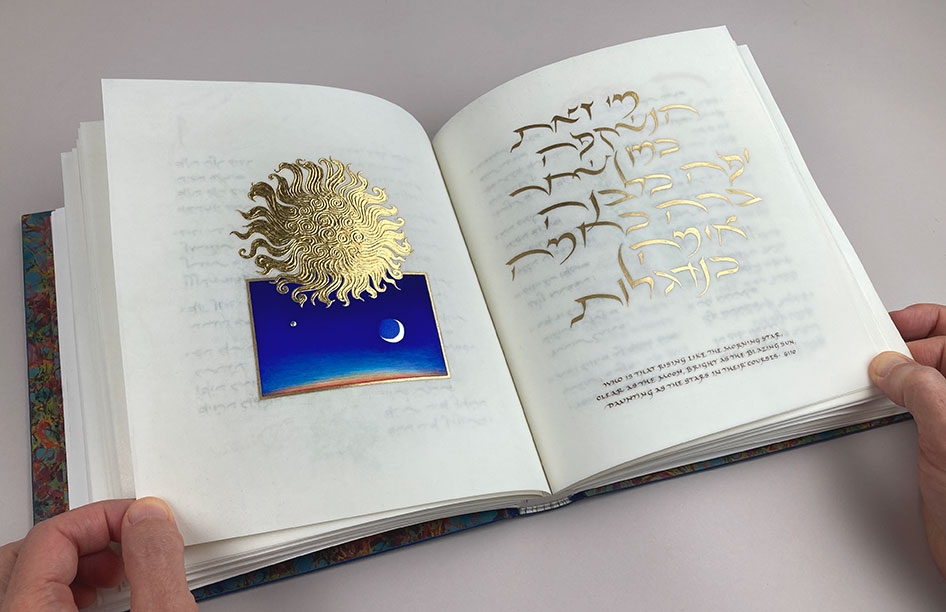 מי זאת
הנשקפה
כמו שחר
יפה כלבנה
ברה כחמה
אימה
כנדגלות
WHO IS THAT RISING LIKE THE MORNING STAR,
CLEAR AS THE MOON, BRIGHT AS THE BLAZING SUN,
DAUNTING AS THE STARS IN THEIR COURSES! 6:10